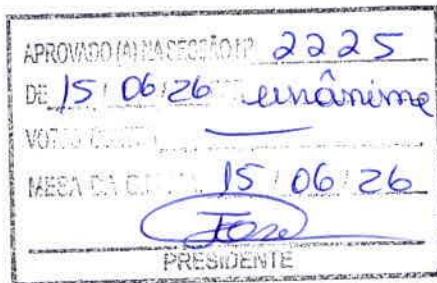 APROVADO (A) NA SESSÃO Nº 2225
DE 15/06/26 unânime
VOTOS
MESA DA 15/06/26
PRESIDENTE